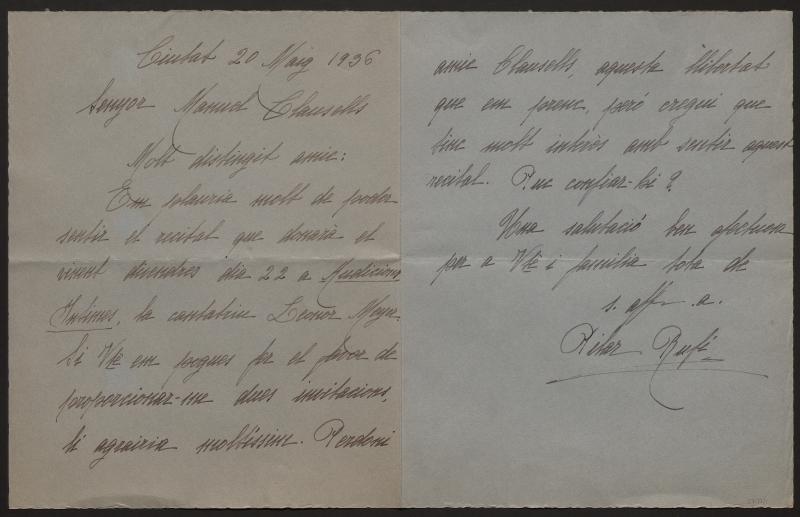 Ciutat 20 Maig 1936
Senyor Manuel Clausells
Molt distingit amic:
Em plauria molt de poder
sentir el recital que donarà el
vinent divendres dia 22 a Audicions
Íntimes, la cantatriu Leonor Meyer.
Si Vtè em pogues fer el favor de
proporcionar-me dues invitacions,
li agrairia moltíssim. Perdoni
amic Clausells, aquesta llibertat
que em prenc, peró cregui que
tinc molt interès amb sentir aquest
recital. Puc confiar-hi?
Una salutació ben afectuosa
per a Vtè i familia tota de
s. aff. a.
Pilar Rufí